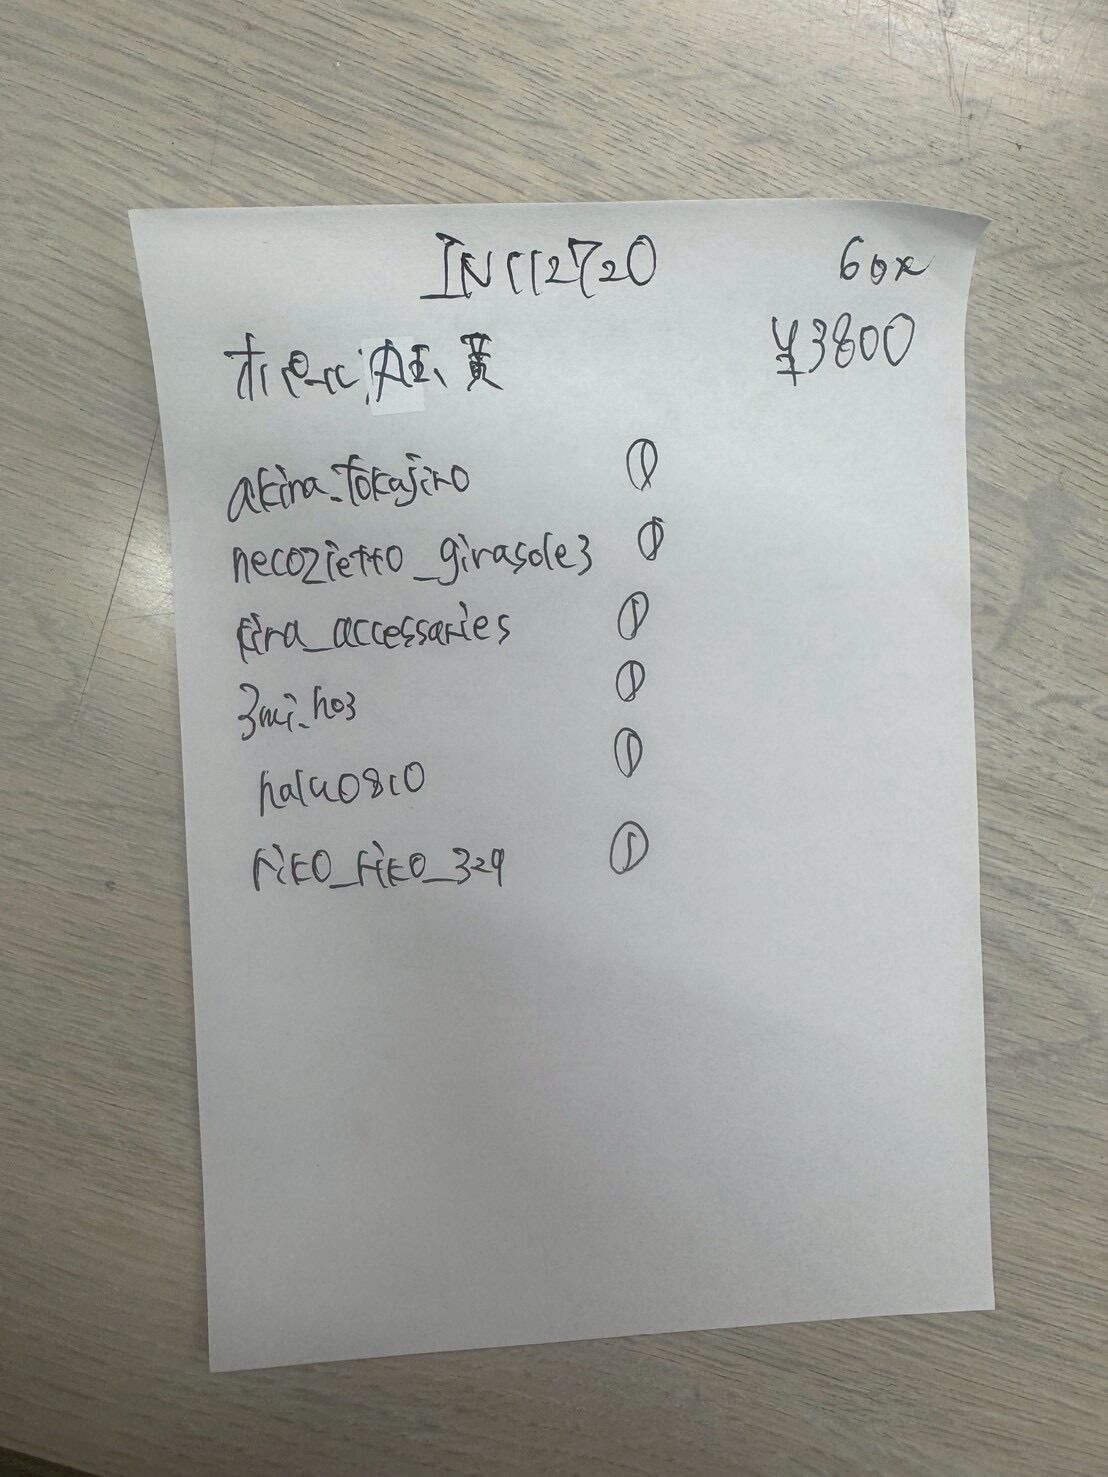 IN112720 60x
¥3800
akira_tokajiro ①
necozietto_girasole3 ①
kira_accessaries ①
3mi_ho3 ①
halu0810 ①
riko_riko_329 ①